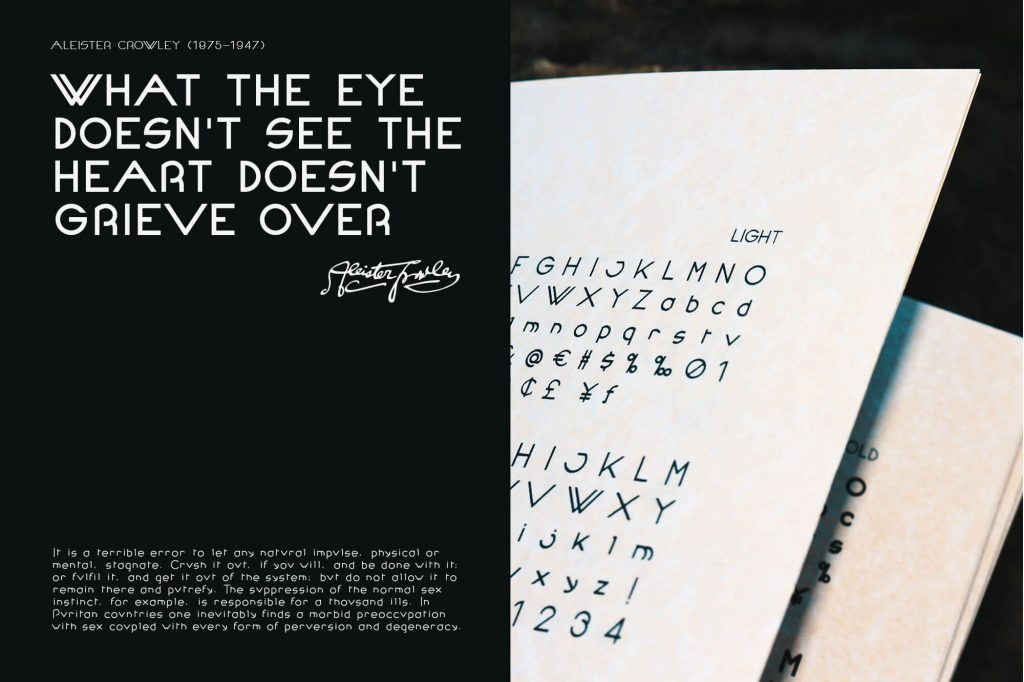 ALEISTER CROWLEY (1875-1947)
WHAT THE EYE
DOESN'T SEE THE
HEART DOESN'T
GRIEVE OVER
Aleister Crowley
It is a terrible error to let any natural impulse, physical or
mental, stagnate. Crush it out, if you will, and be done with it;
or fulfil it, and get it out of the system; but do not allow it to
remain there and putrefy. The suppression of the normal sex
instinct, for example, is responsible for a thousand ills. In
Puritan countries one inevitably finds a morbid preoccupation
with sex coupled with every form of perversion and degeneracy.
LIGHT
F G H I J K L M N O
V W X Y Z a b c d
m n o p q r s t v
& @ € # $ % ‰ 0 1
¢ £ ¥ ƒ
H I J K L M
V W X Y
i j k l m
x y z !
1 2 3 4
OLD
O
c
s
%
M